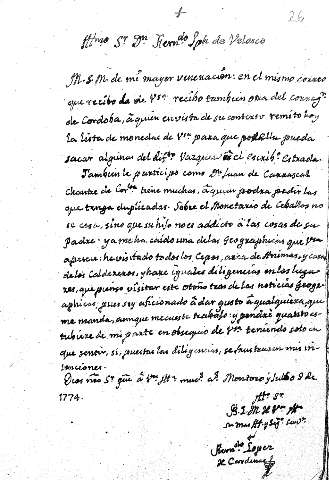 +
26
Ilmo Sr Dn Ferndo Jph de Velasco
M. S. M. de mi mayor veneracion: en el mismo correo
que recibo la de Vsa recibo tambien una del correg.
de Cordoba, à quien en vista de su contexto remito hoy
la lista de monedas de Vsa para que pueda
sacar algunas del Vazquez el escribo Estrada.
Tambien le participo como Dn Juan de Carrascal
Chantre de tiene muchas, à quien podra pedir las
que tenga duplicadas. Sobre el Monetario de Ceballos no
se cosa, sino que su hijo no es addicto à las cosas de su
Padre: ya me ha caido una de las Geographicas que Vsa
aprecia: he visitado todos los Cepos, arca de Animas, y casas
de los Caldereros, y hare iguales diligencias en los luga-
res, que pienso visitar este otoño tras de las noticias Geogr-
aphicas, pues soy aficionado à dar gusto à qualquiera, que
me manda, aunque me cueste trabajo: y pondré quanto es-
tubiere de mi parte en obsequio de Vsa teniendo solo en
que sentir, si, puestas las diligencias, se frustrasen mis in-
tenciones.
Dios nro Sr gue à Vsa Ms as Montoro y Julio 9 de
1774.
Illmo Sr
B. L. M. de Vsa
su mas Afto y Sego Servr
Ferndo Lopez
de Cardenas